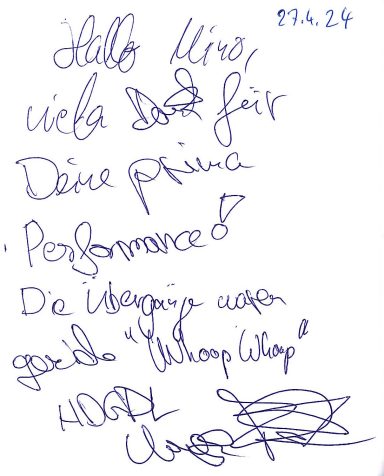 27.4.24
Hallo Miro,
viela Dank für
Deine prima
Performance!
Die Übergänge waren
"Whoop Whoop"
HDGDL